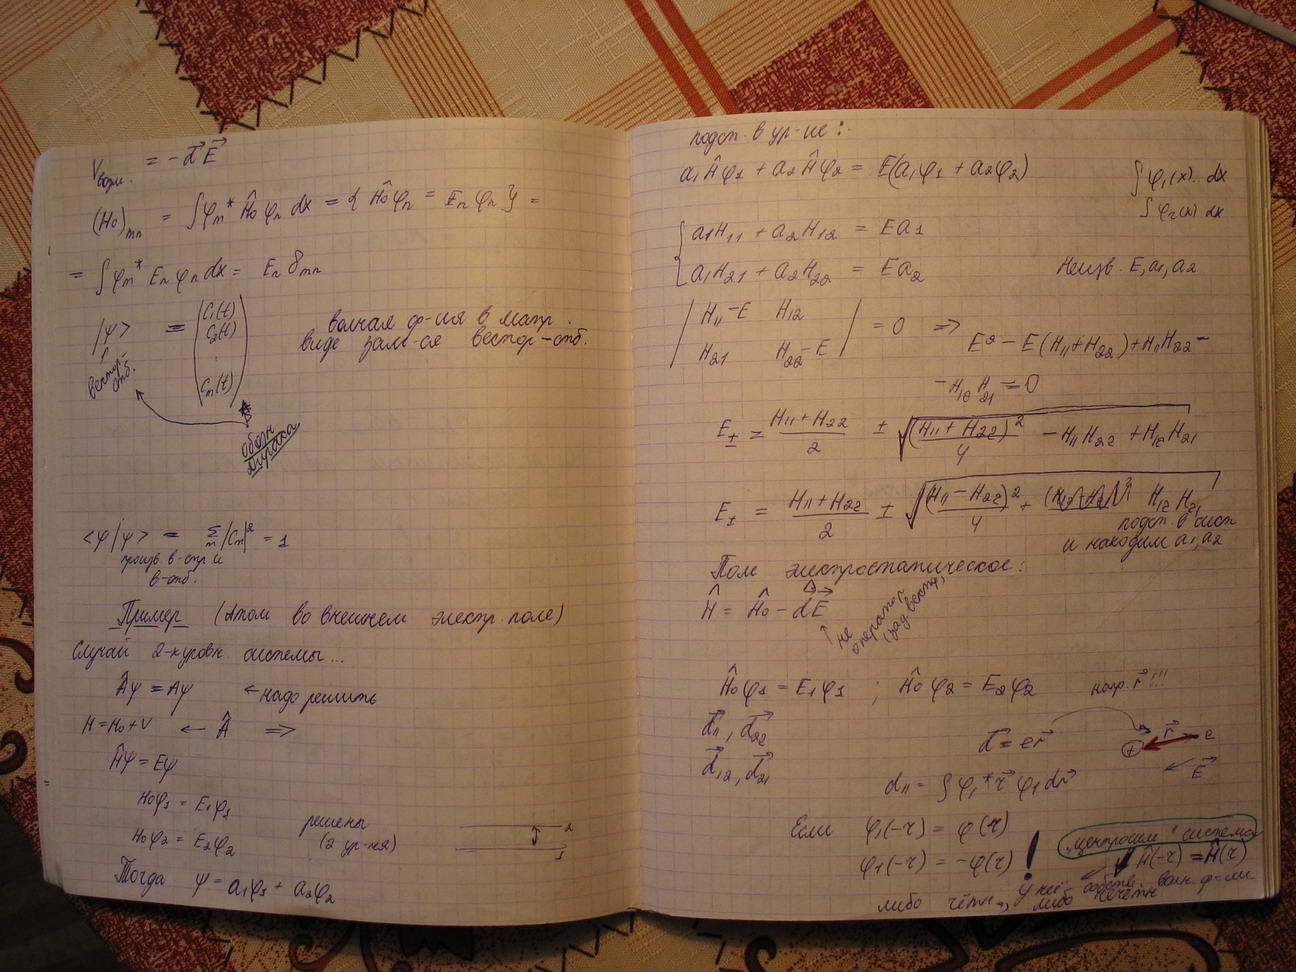 V = -d⃗ E⃗
(H₀)ₘₙ = ∫φₘ* Ĥ₀ φₙ dx = { Ĥ₀φₙ = Eₙ φₙ } =
= ∫φₘ* Eₙ φₙ dx = Eₙ δₘₙ
|ψ> = (C₁(t) C₂(t) ⋮ Cₘ(t))
вектор-
отб.
волчая ф-ия в матр.
виде зам-ся вектор-отб.
обозн
Дирака
<ψ|ψ> = Σₘ |Cₘ|² = 1
произв. в-стр и
в-отб.
Пример (Атом во внешнем электр. поле)
Случай 2-х уровн. системы...
Âψ = Aψ ← надо решить
H = H₀ + V ← Â ⇒
Ĥψ = Eψ
H₀φ₁ = E₁φ₁
H₀φ₂ = E₂φ₂
решены
(2 ур-ния)
2
1
Тогда ψ = a₁φ₁ + a₂φ₂
подст. в ур-ие:
a₁Ĥφ₁ + a₂Ĥφ₂ = E(a₁φ₁ + a₂φ₂)
∫φ₁(x).. dx
∫φ₂(x) dx
{ a₁H₁₁ + a₂H₁₂ = Ea₁
a₁H₂₁ + a₂H₂₂ = Ea₂
Неизв. E, a₁, a₂
| H₁₁-E H₁₂ |
| H₂₁ H₂₂-E | = 0 ⇒
E² - E(H₁₁+H₂₂) + H₁₁H₂₂ -
- H₁₂H₂₁ = 0
E± = (H₁₁+H₂₂)/2 ± √((H₁₁+H₂₂)²/4 - H₁₁H₂₂ + H₁₂H₂₁)
E± = (H₁₁+H₂₂)/2 ± √((H₁₁-H₂₂)²/4 + H₁₂H₂₁)
подст. в сист
и находим a₁, a₂
Поле электростатическое:
Ĥ = Ĥ₀ - d⃗̂E⃗
↑ не
оператор,
Ĥ₀φ₁ = E₁φ₁ ; Ĥ₀φ₂ = E₂φ₂
напр. r⃗ !!!
d⃗₁₁, d⃗₂₂
d⃗₁₂, d⃗₂₁
d⃗ = er⃗
+ r⃗ e
E⃗
d₁₁ = ∫φ₁* r⃗ φ₁ dr⃗
Если φ₁(-r) = φ(r)
φ₁(-r) = -φ(r) !
"центросим" система
Ĥ(-r) = Ĥ(r)
у неё собств. волн. ф-ии
либо чётн., либо нечётн